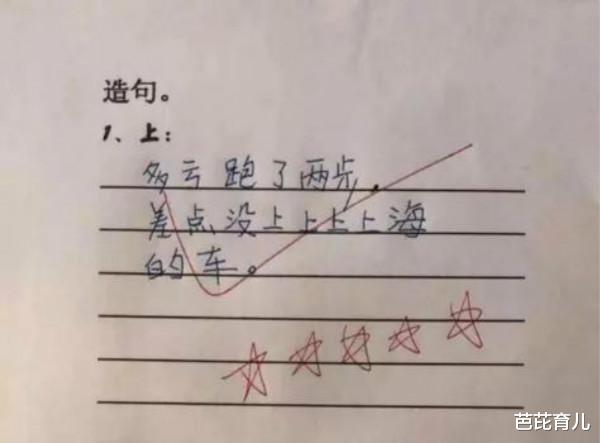 造句。
1、上：
多亏跑了两步，
差点没上上上上海
的车。
芭芘育儿